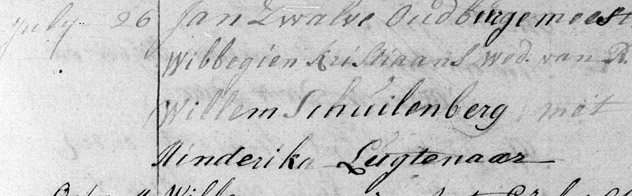 July 26 Jan Zwalve Oudburgemeest
Wibbegien Kristiaans Wed. van R.
Willem Schuilenberg met
Hinderika Lugtenaar